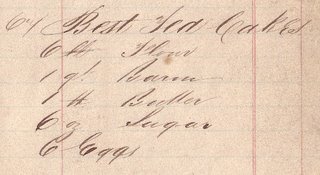 67 Best Tea Cakes
6 lb Flour
1 qt Barm
1 lb Butter
6 oz Sugar
6 Eggs